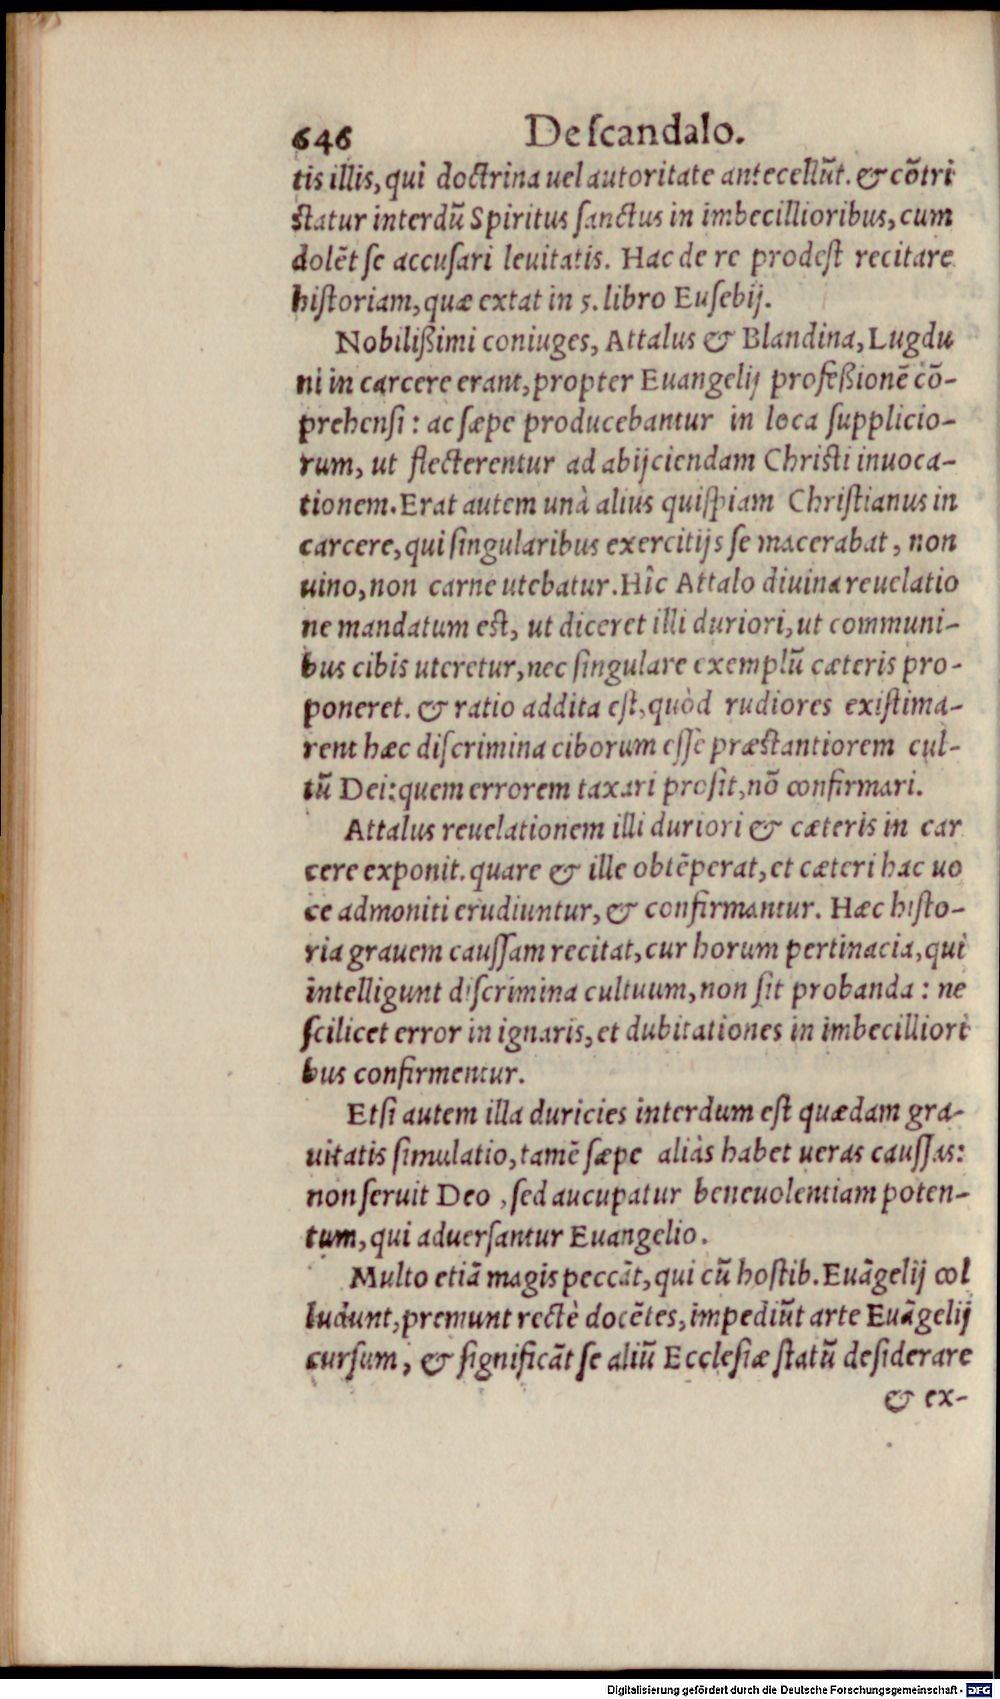 646 De ſcandalo.
tis illis, qui doctrina uel autoritate antecellūt. & cōtri
ſtatur interdū Spiritus ſanctus in imbecillioribus, cum
dolēt ſe accuſari leuitatis. Hac de re prodeſt recitare
hiſtoriam, quæ extat in 5. libro Euſebij.
Nobilißimi coniuges, Attalus & Blandina, Lugdu
ni in carcere erant, propter Euangelij profeßionē cō-
prehenſi: ac ſæpe producebantur in loca ſupplicio-
rum, ut flecterentur ad abijciendam Chriſti inuoca-
tionem. Erat autem unà alius quiſpiam Chriſtianus in
carcere, qui ſingularibus exercitijs ſe macerabat, non
uino, non carne utebatur. Hîc Attalo diuina reuelatio
ne mandatum eſt, ut diceret illi duriori, ut communi-
bus cibis uteretur, nec ſingulare exemplū cæteris pro-
poneret. & ratio addita eſt, quòd rudiores exiſtima-
rent hæc diſcrimina ciborum eſſe præſtantiorem cul-
tū Dei: quem errorem taxari proſit, nō confirmari.
Attalus reuelationem illi duriori & cæteris in car
cere exponit. quare & ille obtēperat, et cæteri hac uo
ce admoniti erudiuntur, & confirmantur. Hæc hiſto-
ria grauem cauſſam recitat, cur horum pertinacia, qui
intelligunt diſcrimina cultuum, non ſit probanda: ne
ſcilicet error in ignaris, et dubitationes in imbecilliori
bus confirmentur.
Etſi autem illa duricies interdum eſt quædam gra-
uitatis ſimulatio, tamē ſæpe aliàs habet ueras cauſſas:
non ſeruit Deo, ſed aucupatur beneuolentiam poten-
tum, qui aduerſantur Euangelio.
Multo etiā magis peccāt, qui cū hoſtib. Euāgelij col
ludunt, premunt rectè docētes, impediūt arte Euāgelij
curſum, & ſignificāt ſe aliū Eccleſiæ ſtatū deſiderare
& ex-
Digitalisierung gefördert durch die Deutsche Forschungsgemeinschaft - DFG